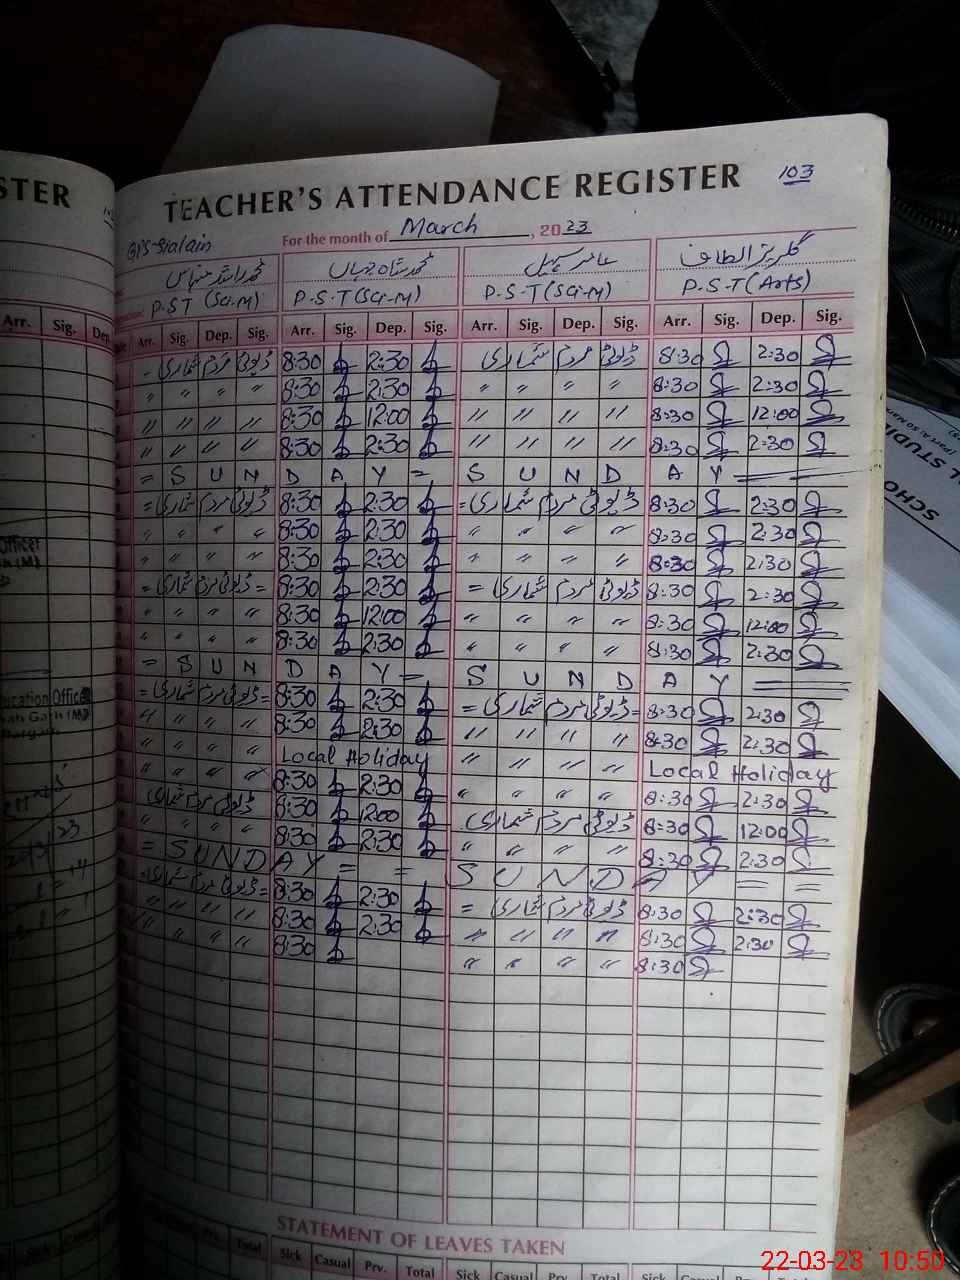 STER
TEACHER'S ATTENDANCE REGISTER 103
For the month of March, 2023
محمد شاہ جہاں عامر سہیل گلریز الطاف
P.S.T (Sci-M) P.S.T (Sci-M) P.S.T (Sci-M) P.S.T (Arts)
Arr. Sig. Dep. Arr. Sig. Dep. Sig. Arr. Sig. Dep. Sig. Arr. Sig. Dep. Sig. Arr. Sig. Dep. Sig.
ڈیوٹی مردم شماری 8:30 2:30 ڈیوٹی مردم شماری 8:30 2:30
" " " " 8:30 2:30 " " " " 8:30 2:30
" " " " 8:30 12:00 " " " " 8:30 12:00
" " " " 8:30 2:30 " " " " 8:30 2:30
= S U N D A Y = S U N D A Y =
= ڈیوٹی مردم شماری 8:30 2:30 = ڈیوٹی مردم شماری 8:30 2:30
" " " " 8:30 2:30 " " " " 8:30 2:30
" " " " 8:30 2:30 " " " " 8:30 2:30
= ڈیوٹی مردم شماری = 8:30 2:30 = ڈیوٹی مردم شماری 8:30 2:30
" " " " 8:30 12:00 " " " " 8:30 12:00
" " " " 8:30 2:30 " " " " 8:30 2:30
= S U N D A Y = S U N D A Y =
= ڈیوٹی مردم شماری = 8:30 2:30 = ڈیوٹی مردم شماری = 8:30 2:30
" " " " 8:30 2:30 " " " " 8:30 2:30
" " " " Local Holiday " " " " Local Holiday
" " " " 8:30 2:30 " " " " 8:30 2:30
ڈیوٹی مردم شماری 8:30 12:00 ڈیوٹی مردم شماری 8:30 12:00
" " " " 8:30 2:30 " " " " 8:30 2:30
= S U N D A Y = = S U N D A Y = =
= ڈیوٹی مردم شماری = 8:30 2:30 = ڈیوٹی مردم شماری 8:30 2:30
" " " " 8:30 2:30 " " " " 8:30 2:30
" " " " 8:30 " " " " 8:30
STATEMENT OF LEAVES TAKEN
Prv. Total Sick Casual Prv. Total Sick Casual Prv. Total Sick Casual Prv. Total
22-03-23 10:50